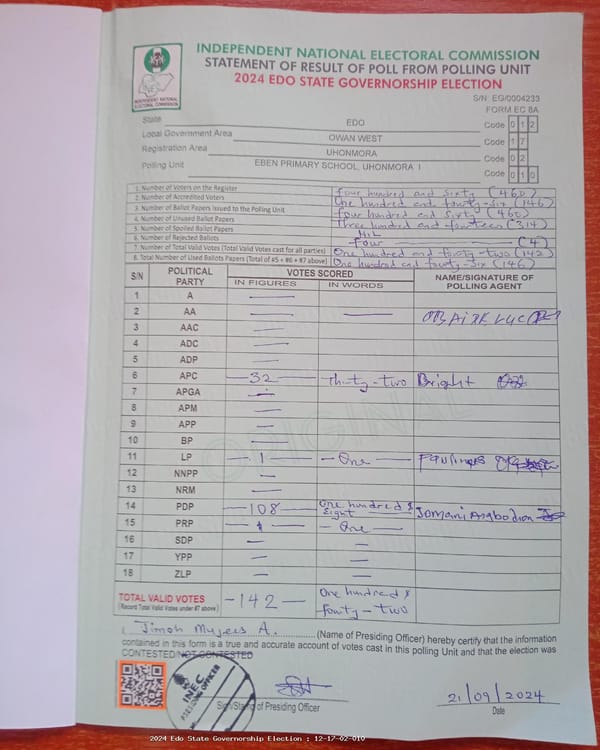 INDEPENDENT NATIONAL ELECTORAL COMMISSION
STATEMENT OF RESULT OF POLL FROM POLLING UNIT
2024 EDO STATE GOVERNORSHIP ELECTION
INEC
INDEPENDENT NATIONAL ELECTORAL COMMISSION
S/N: EG/0004233
FORM EC 8A
State EDO Code 0 1 2
Local Government Area OWAN WEST Code 1 7
Registration Area UHONMORA Code 0 2
Polling Unit EBEN PRIMARY SCHOOL, UHONMORA I Code 0 1 0
1. Number of Voters on the Register four hundred and sixty (460)
2. Number of Accredited Voters One hundred and fourty-six (146)
3. Number of Ballot Papers Issued to the Polling Unit four hundred and sixty (460)
4. Number of Unused Ballot Papers three hundred and fourteen (314)
5. Number of Spoiled Ballot Papers NIL
6. Number of Rejected Ballots four (4)
7. Number of Total Valid Votes (Total Valid Votes cast for all parties) One hundred and fourty-two (142)
8. Total Number of Used Ballots Papers (Total of #5 + #6 + #7 above) One hundred and fourty-six (146)
S/N POLITICAL PARTY VOTES SCORED NAME/SIGNATURE OF POLLING AGENT
IN FIGURES IN WORDS
1 A —
2 AA — —
3 AAC —
4 ADC —
5 ADP —
6 APC — 32 — thirty-two Bright
7 APGA —
8 APM —
9 APP —
10 BP —
11 LP — 1 — — One
12 NNPP —
13 NRM —
14 PDP — 108 — One hundred & Eight
15 PRP — 1 — — One —
16 SDP — —
17 YPP — —
18 ZLP — —
TOTAL VALID VOTES - 142 — One hundred & fourty-two
(Record Total Valid Votes under #7 above)
I, Jimoh Mujees A. (Name of Presiding Officer) hereby certify that the information
contained in this form is a true and accurate account of votes cast in this polling Unit and that the election was
CONTESTED/NOT CONTESTED
INEC
PRESIDING OFFICER
Sign/Stamp of Presiding Officer
21/09/2024
Date
ORIGINAL
2024 Edo State Governorship Election : 12-17-02-010